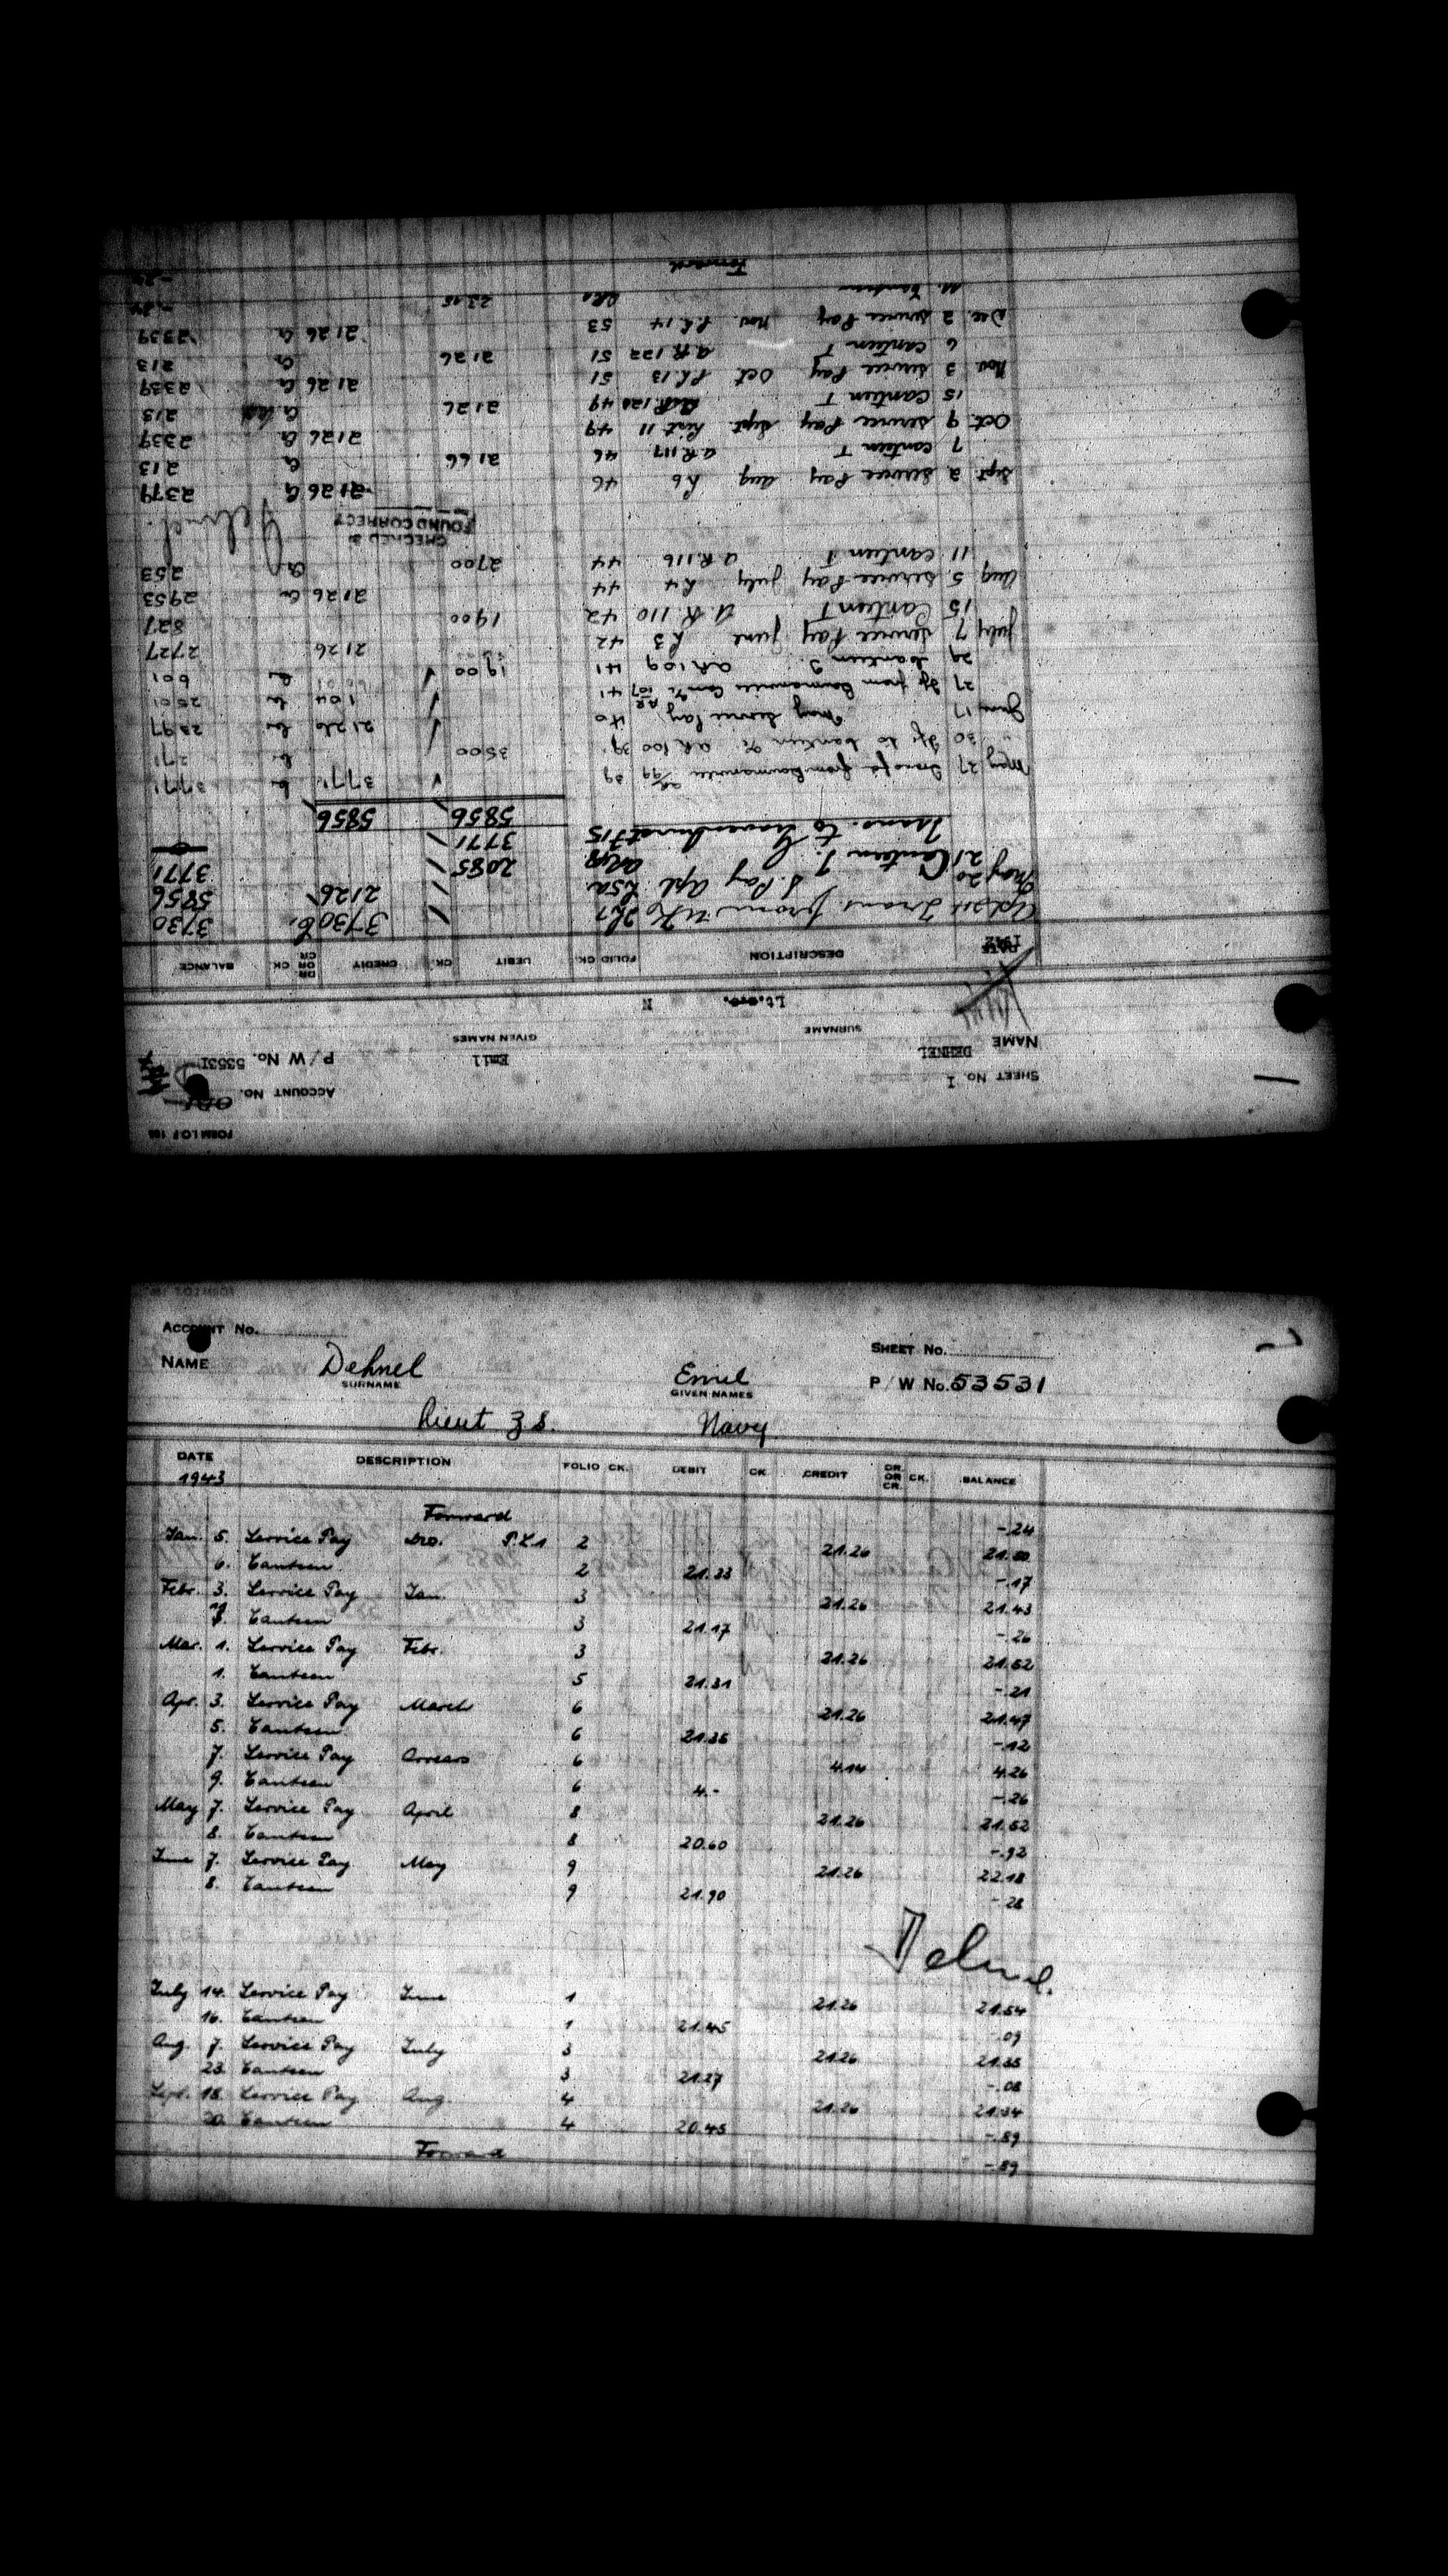 FORM I.O F 166
SHEET No. I ACCOUNT No.
NAME DEHNEL Emil P/W No. 53531
SURNAME GIVEN NAMES
Lt. N
DATE DESCRIPTION FOLIO CK. DEBIT CK. CREDIT DR OR CR CK. BALANCE
1942
Trans from UK 3730 3730
May 20 S. Pay Apl 2126 5856
21 Canteen T. 2085 3771
Trans. to Gravenhurst F15 3771
5856 5856
May 27 Transfer from Bowmanville 39 3771 3771
30 to Canteen AR 100 39 3500 271
June 17 May Service Pay 40 2126 2397
27 from Bowmanville Can 41 104 2501
29 Canteen AR 109 41 1900 601
July 7 Service Pay June L 3 42 2126 2727
15 Canteen T A.R. 110 42 1900 827
Aug 5. Service Pay July L 4 44 2126 2953
11 Canteen T A.R. 116 44 2700 253
CHECKED & FOUND CORRECT
Sept. 2 Service Pay Aug L 6 46 2126 2379
7 Canteen T A.R. 117 46 2166 213
Oct. 9 Service Pay Sept. List 11 49 2126 2339
15 Canteen T 49 2126 213
Nov. 3 Service Pay Oct P.L. 13 51 2126 2339
6 Canteen T A.R. 122 51 2126 213
Dec. 2 Service Pay Nov. P.L. 14 53 2126 2339
11. Canteen 23.15 -.24
Forward -.24
ACCOUNT No. SHEET No.
NAME Dehnel Emil P/W No. 53531
SURNAME GIVEN NAMES
Lieut z.S. Navy
DATE DESCRIPTION FOLIO CK. DEBIT CK. CREDIT DR. OR CR. CK. BALANCE
1943
Forward -.24
Jan. 5. Service Pay Dec. P.L.1 2 21.26 21.50
6. Canteen 2 21.33 -.17
Febr. 3. Service Pay Jan. 3 21.26 21.43
Canteen 3 21.17 -.26
Mar. 1. Service Pay Febr. 3 21.26 21.52
1. Canteen 5 21.31 -.21
Apr. 3. Service Pay March 6 21.26 21.47
5. Canteen 6 21.35 -.12
7. Service Pay Arrears 6 4.14 4.26
9. Canteen 6 4.- -.26
May 7. Service Pay April 8 21.26 21.52
8. Canteen 8 20.60 -.92
June 7. Service Pay May 9 21.26 22.18
8. Canteen 9 21.90 -.28
Dehnel.
July 14. Service Pay June 1 21.26 21.54
16. Canteen 1 21.45 -.09
Aug. 7. Service Pay July 3 21.26 21.35
23. Canteen 3 21.27 -.08
Sept. 18. Service Pay Aug. 4 21.26 21.34
20. Canteen 4 20.45 -.89
Forward -.89